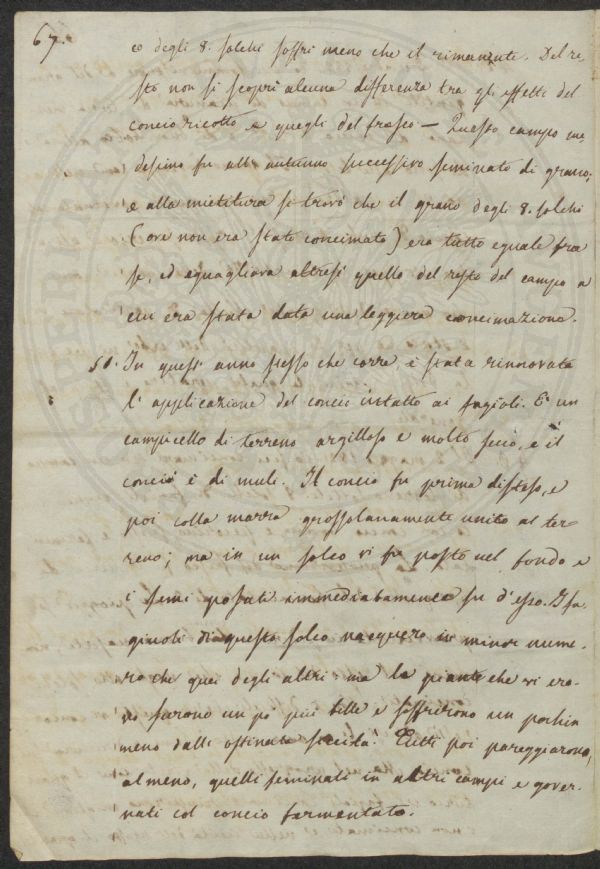 67.
co degli 8. solchi soffrì meno che il rimanente. Del re
sto non si scoprì alcuna differenza tra gli effetti del
concio ricotto e quegli del fresco — Questo campo me-
desimo fu all' autunno successivo seminato di grano,
e alla mietitura si trovò che il grano degli 8. solchi
(ove non era stato concimato) era tutto eguale fra
se, ed eguagliava altresì quello del resto del campo a
cui era stata data una leggiera concimazione.
51. In quest' anno stesso che corre, è stata rinnovata
l' applicazione del concio intatto ai fagioli. È un
campicello di terreno argilloso e molto secco, e il
concio è di muli. Il concio fu prima disteso, e
poi colla marra grossolanamente unito al ter-
reno; ma in un solco vi fu posto nel fondo e
i semi posati immediatamente su d'esso. I fa-
giuoli di questo solco nacquero in minor nume-
ro che quei degli altri: ma le piante che vi era-
no furono un pò più belle e soffrirono un pochin
meno dalla ostinata siccità. Tutti poi pareggiarono,
almeno, quelli seminati in altri campi e gover-
nati col concio fermentato.